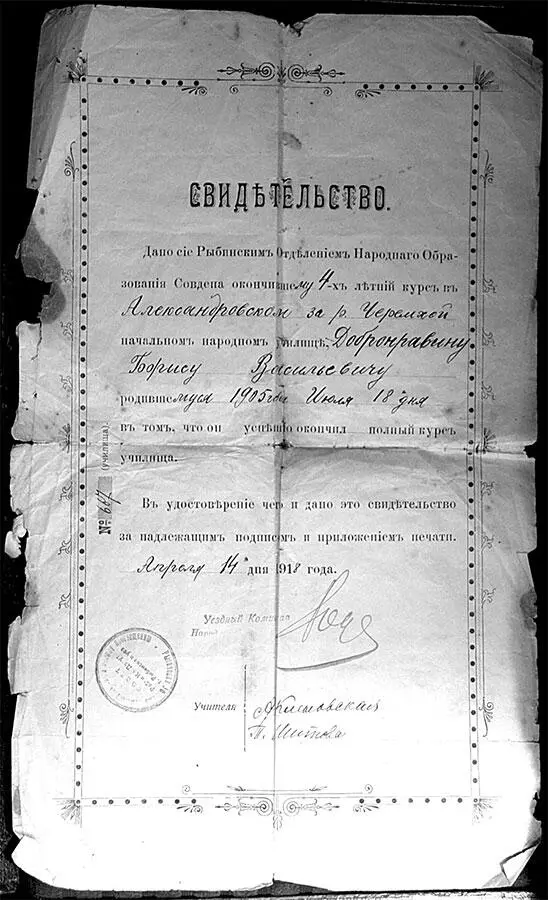 СВИДѢТЕЛЬСТВО.
Дано сіе Рыбинскимъ Отдѣленіемъ Народнаго Обра-
зованія Совдепа окончившему 4-хъ лѣтній курсъ въ
Александровском за р. Черемхой
начальномъ народномъ училищѣ, Добронравину
Борису Васильевичу
родившемуся 1905 года Июля 18 дня
въ томъ, что он успѣшно окончил полный курсъ
училища.
Въ удостовѣреніе чего и дано это свидѣтельство
за надлежащимъ подписом и приложеніемъ печати.
Апреля 14 дня 1918 года.
№ 667 (училища)
Уездный Комисар
Народ
Учителя